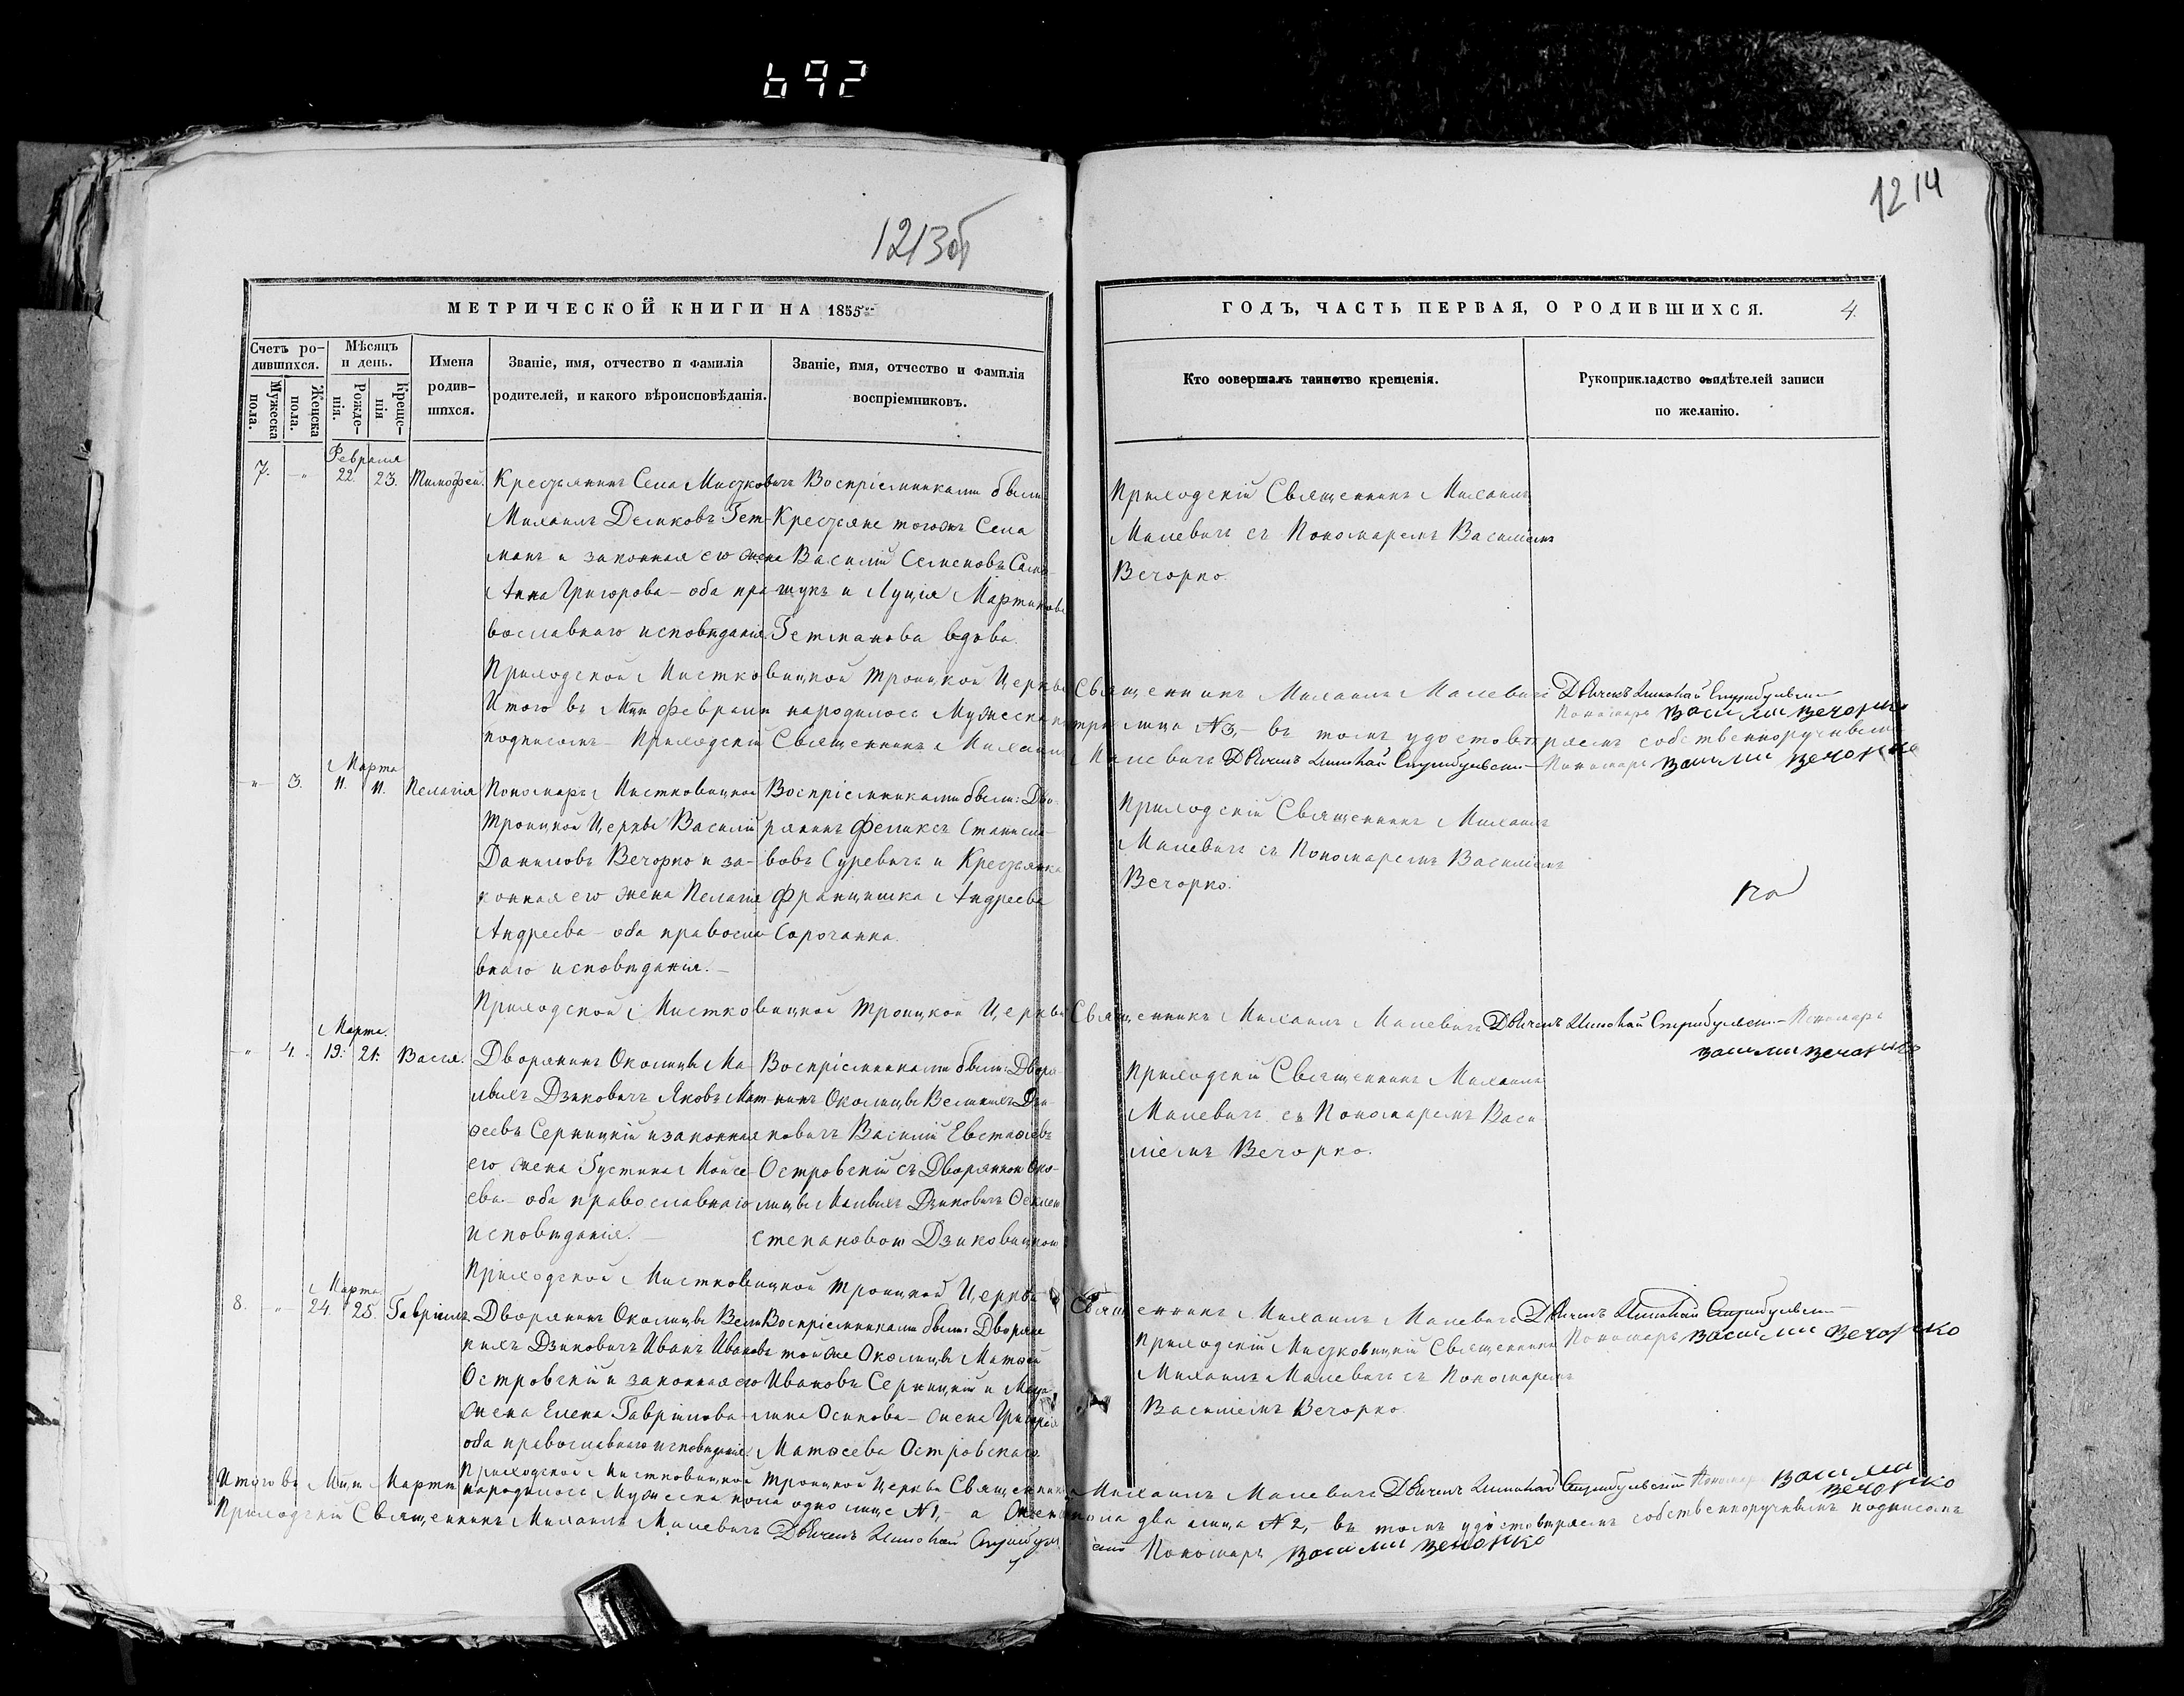 692
1213об
1214
МЕТРИЧЕСКОЙ КНИГИ НА 1855
ГОДЪ, ЧАСТЬ ПЕРВАЯ, О РОДИВШИХСЯ.
4.
Счетъ ро-
дившихся.
Мужеска
пола.
Женска
пола.
Мѣсяцъ
и день.
Рожде-
нія.
Креще-
нія
Имена
родив-
шихся.
Званіе, имя, отчество и фамилія
родителей, и какого вѣроисповѣданія.
Званіе, имя, отчество и фамилія
воспріемниковъ.
Кто совершалъ таинство крещенія.
Рукоприкладство свидѣтелей записи
по желанію.
Февраля
7. - 22. 23. Тимофей.
Крестьянинъ Села Мистковичъ
Михаилъ Демковъ Гет-
манъ и законная его жена
Анна Григорова - оба пра-
вославнаго исповѣданія.
Воспріемниками были
Крестьяне тогожъ Села
Василій Семеновъ
и Луція Мартинова
Гетманова вдова.
Приходскій Священникъ Михаилъ
Малевичъ съ Пономаремъ Василіемъ
Вечорко.
Приходской Мистковицкой Троицкой Церкви Священникъ Михаилъ Малевичъ
Пономарь Василий Вечорко
Итого въ Мцѣ Февралѣ народилось Мужеска три лица №3,- въ томъ удостовѣряемъ собственноручнымъ
подписомъ - Приходскій Священникъ Михаилъ Малевичъ Пономарь Василий Вечорко
Марта
- 3. 11. 11. Пелагія
Пономарь Мистковицкой
Троицкой Церкви Василій
Даниловъ Вечорко и за-
конная его жена Пелагія
Андреева - оба правосла-
внаго исповѣданія. -
Воспріемниками были: Дво-
рянинъ Феликсъ Станисла-
вовъ Суревичъ и Крестьянка
Францишка Андреева
Сорочанка.
Приходскій Священникъ Михаилъ
Малевичъ съ Пономаремъ Василіемъ
Вечорко.
Приходской Мистковицкой Троицкой Церкви Священникъ Михаилъ Малевичъ Пономарь
Василий Вечорко
Марта.
- 4. 19. 21. Васса.
Дворянинъ Околицы Ма-
лыхъ Дзиковичъ Яковъ Мат-
ѳеевъ Серницкій и законная
его жена Густина Мойсе-
ева - оба православнаго
исповѣданія. -
Воспріемниками были: Дворя-
нинъ Околицы Великихъ Дзи-
ковичъ Василій Евстаѳіевъ
Островскій съ Дворянкой Око-
лицы Малыхъ Дзиковичъ
Степановою Дзиковицкою
Приходскій Священникъ Михаилъ
Малевичъ съ Пономаремъ Васи-
ліемъ Вечорко.
Приходской Мистковицкой Троицкой Церкви Священникъ Михаилъ Малевичъ
Пономарь Василий Вечорко
Марта
8. - 24. 25. Гавріилъ.
Дворянинъ Околицы Вели-
кихъ Дзиковичъ Иванъ Ивановъ
Островскій и законная его
жена Елена Гавріилова -
оба православнаго исповѣданія.
Воспріемниками были: Дворяне
той же Околицы Матѳей
Ивановъ Серницкій и
Осипова - жена Григорія
Матѳеева Островскаго.
Приходскій Мистковицкій Священникъ
Михаилъ Малевичъ съ Пономаремъ
Василіемъ Вечорко.
Приходской Мистковицкой Троицкой Церкви Священникъ Михаилъ Малевичъ Пономарь Василий
Вечорко
Итого въ Мцѣ Мартѣ народилось Мужеска пола одно лице №1,- а Женска пола два лица №2,- въ томъ удостовѣряемъ собственноручнымъ подписомъ
Приходскій Священникъ Михаилъ Малевичъ Пономарь Василий Вечорко